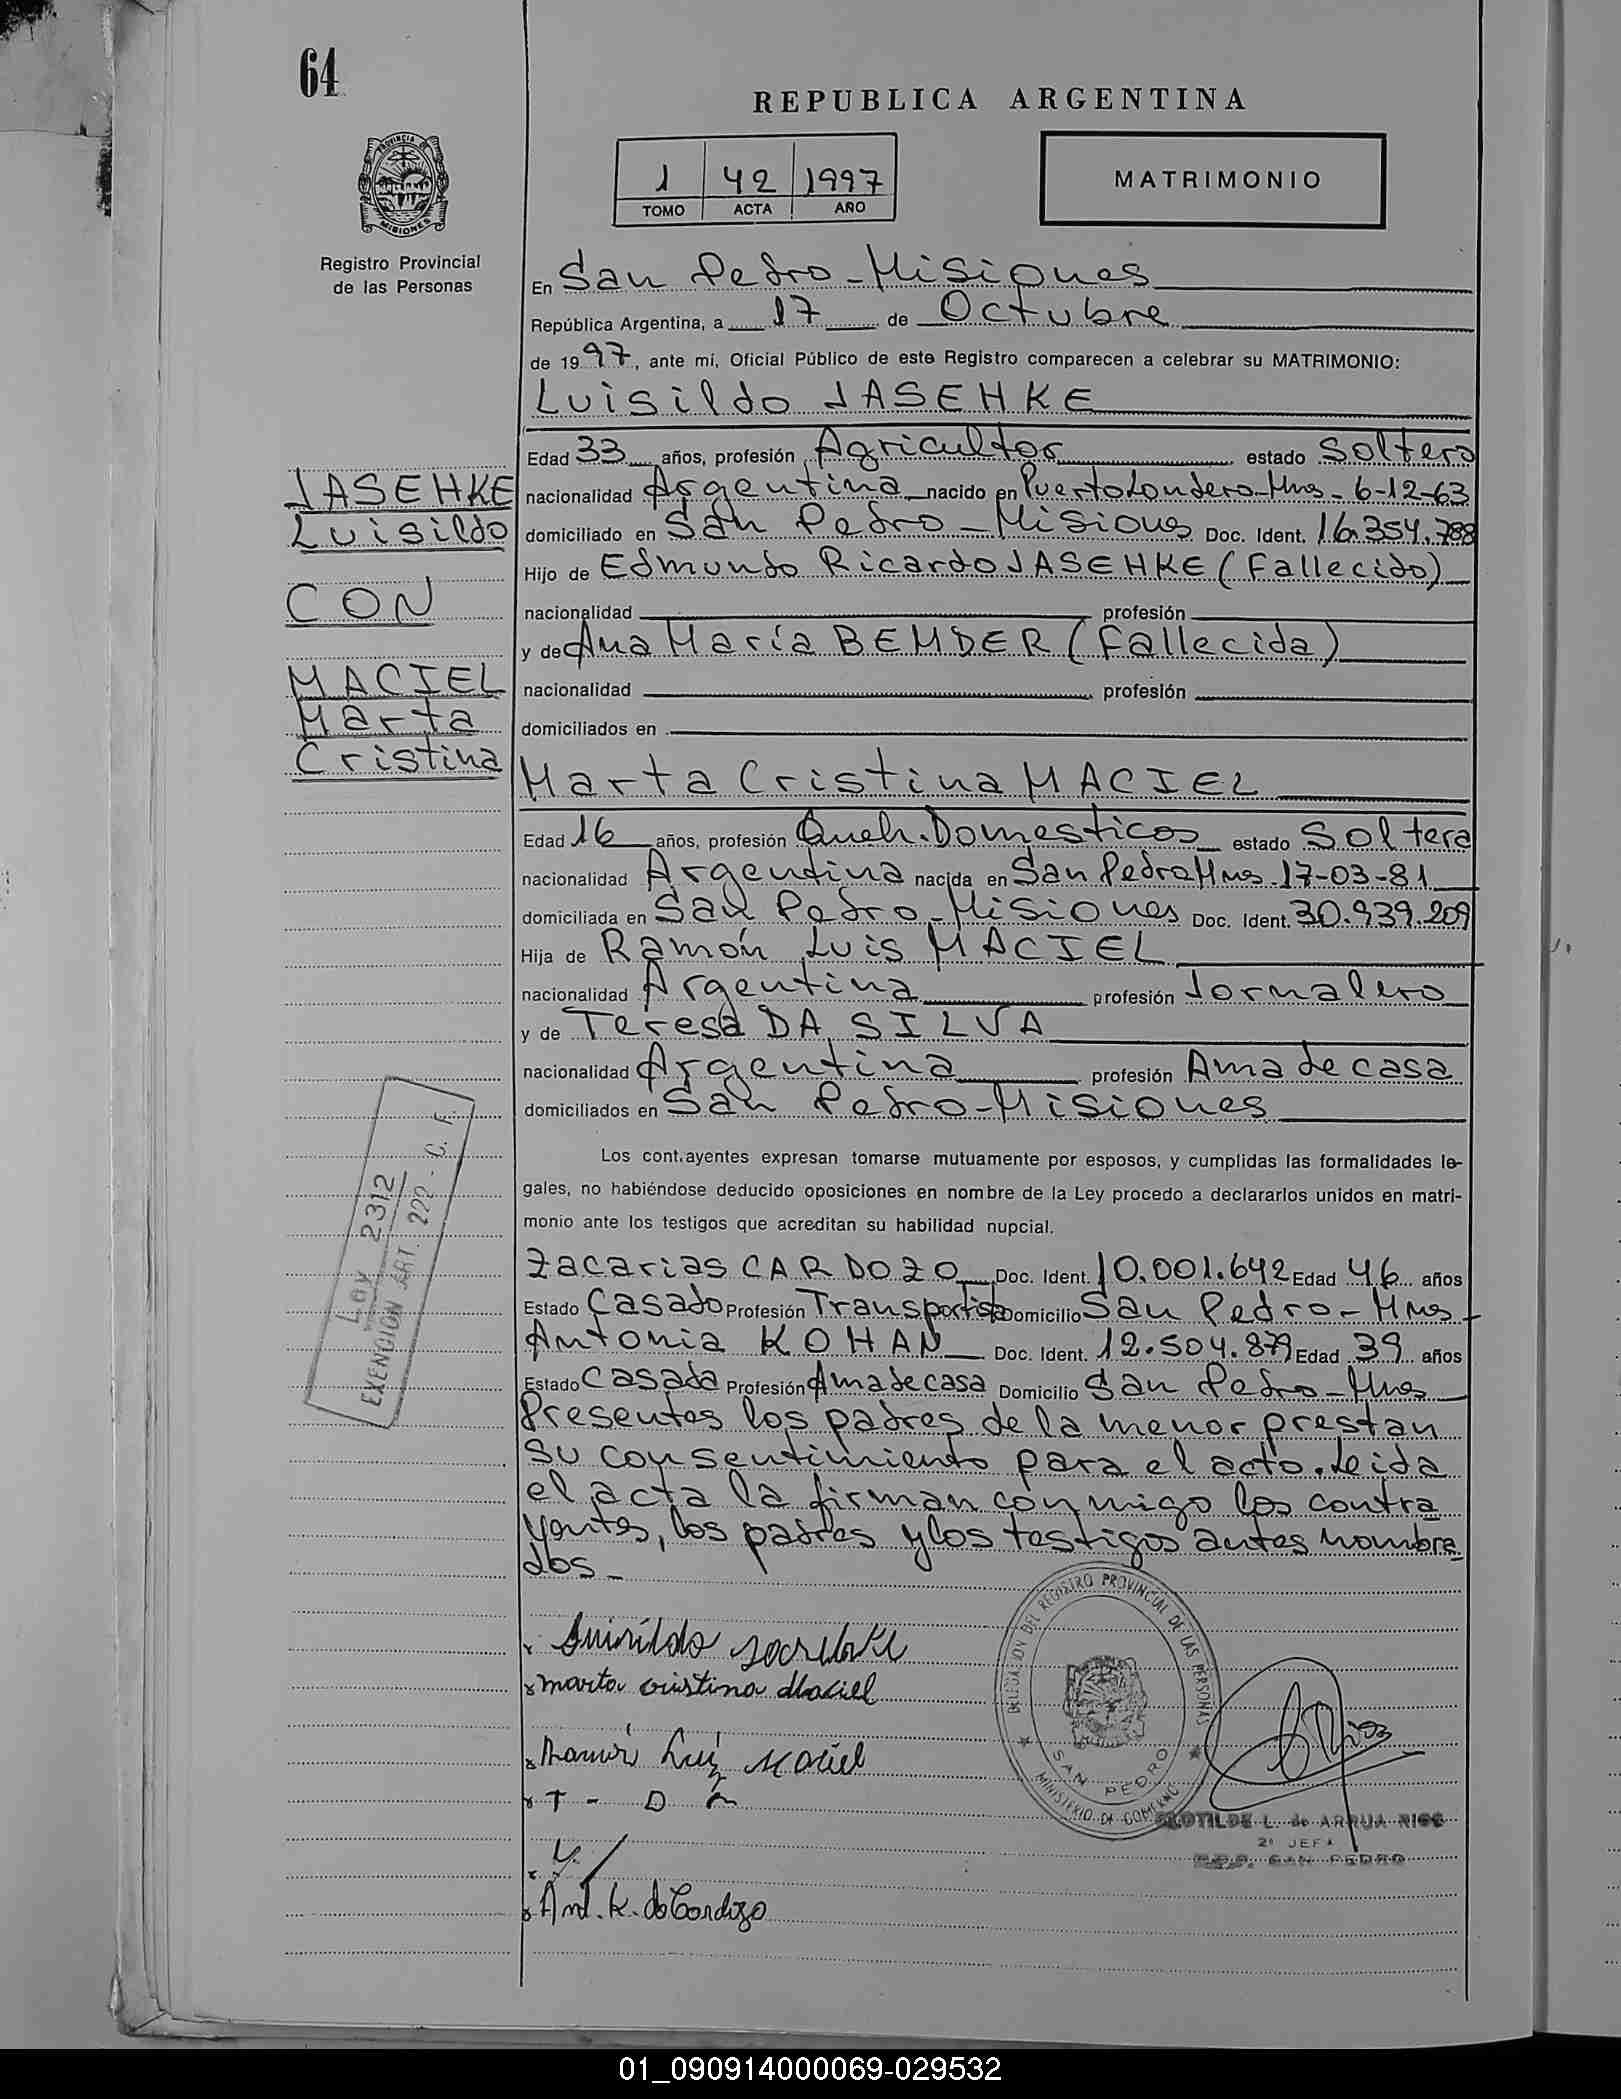 64
REPUBLICA ARGENTINA
1 42 1997
TOMO ACTA AÑO
MATRIMONIO
PROVINCIA DE MISIONES
Registro Provincial
de las Personas
En San Pedro - Misiones
República Argentina, a 17 de Octubre
de 1997, ante mí, Oficial Público de este Registro comparecen a celebrar su MATRIMONIO:
Luisildo JASEHKE
Edad 33 años, profesión Agricultor estado Soltero
JASEHKE
nacionalidad Argentina nacido en Puerto Londero-Mnes - 6-12-63
Luisildo
domiciliado en San Pedro - Misiones Doc. Ident. 16.354.788
Hijo de Edmundo Ricardo JASEHKE (Fallecido)
CON
nacionalidad profesión
y de Ana María BEMDER (Fallecida)
MACIEL
nacionalidad profesión
Marta
domiciliados en
Cristina
Marta Cristina MACIEL
Edad 16 años, profesión Queh. Domesticos estado Soltera
nacionalidad Argentina nacida en San Pedro Mnes - 17-03-81
domiciliada en San Pedro - Misiones Doc. Ident. 30.939.209
Hija de Ramón Luis MACIEL
nacionalidad Argentina profesión Jornalero
y de Teresa DA SILVA
nacionalidad Argentina profesión Ama de casa
domiciliados en San Pedro - Misiones
Ley 2312
EXENCION ART. 222 - C. F.
Los cont.ayentes expresan tomarse mutuamente por esposos, y cumplidas las formalidades le-
gales, no habiéndose deducido oposiciones en nombre de la Ley procedo a declararlos unidos en matri-
monio ante los testigos que acreditan su habilidad nupcial.
Zacarias CARDOZO Doc. Ident. 10.001.642 Edad 46 años
Estado Casado Profesión Transportista Domicilio San Pedro - Mnes
Antonia KOHAN Doc. Ident. 12.504.879 Edad 39 años
Estado Casada Profesión Ama de casa Domicilio San Pedro - Mnes
Presentes los padres de la menor prestan
su consentimiento para el acto. Leida
el acta la firman conmigo los contra
yentes, los padres y los testigos antes nombra
dos -
x Luisildo
x marta cristina Maciel
x Ramón Luiz Maciel
x T - D
x
x Ant. K. de Cardozo
DELEGACION DEL REGISTRO PROVINCIAL DE LAS PERSONAS
SAN PEDRO
MINISTERIO DE GOBIERNO
CLOTILDE L. de ARRUA RIOS
2º JEFA
R.P.P. SAN PEDRO
01_090914000069-029532